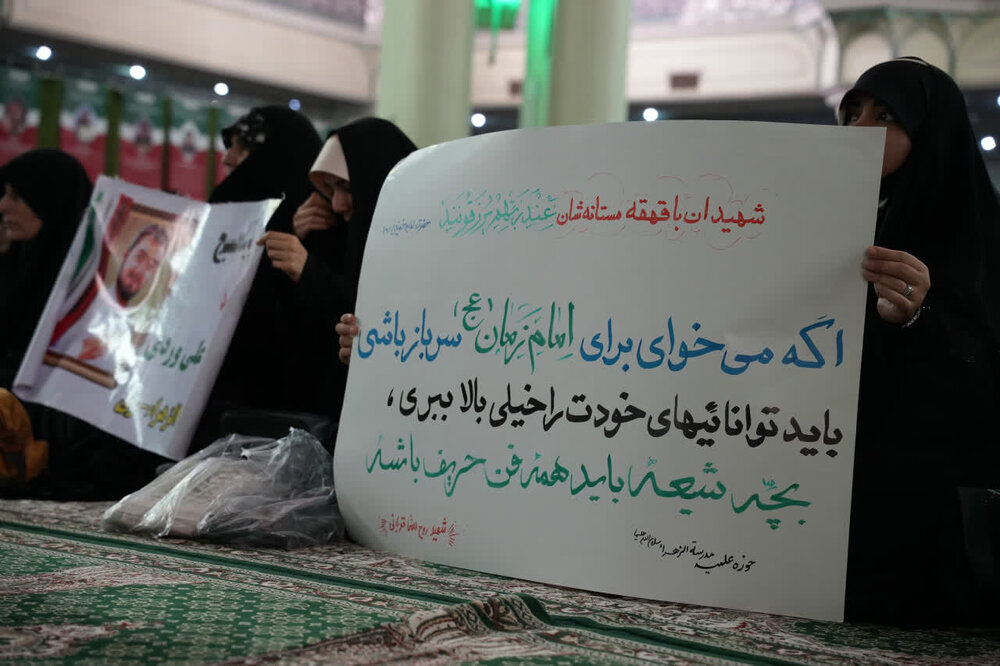 شهیدان با قهقه مستانه‌شان عند ربهم یرزقونند
اگه می‌خوای برای امام زمان (عج) سرباز باشی
باید توانائیهای خودت را خیلی بالا ببری ،
بچّه شیعه باید همه فن حریف باشه
شهید روح الله قربانی
حوزه علمیه مدرسة الزهراء سلام الله علیها
علی وردی
الزهرا